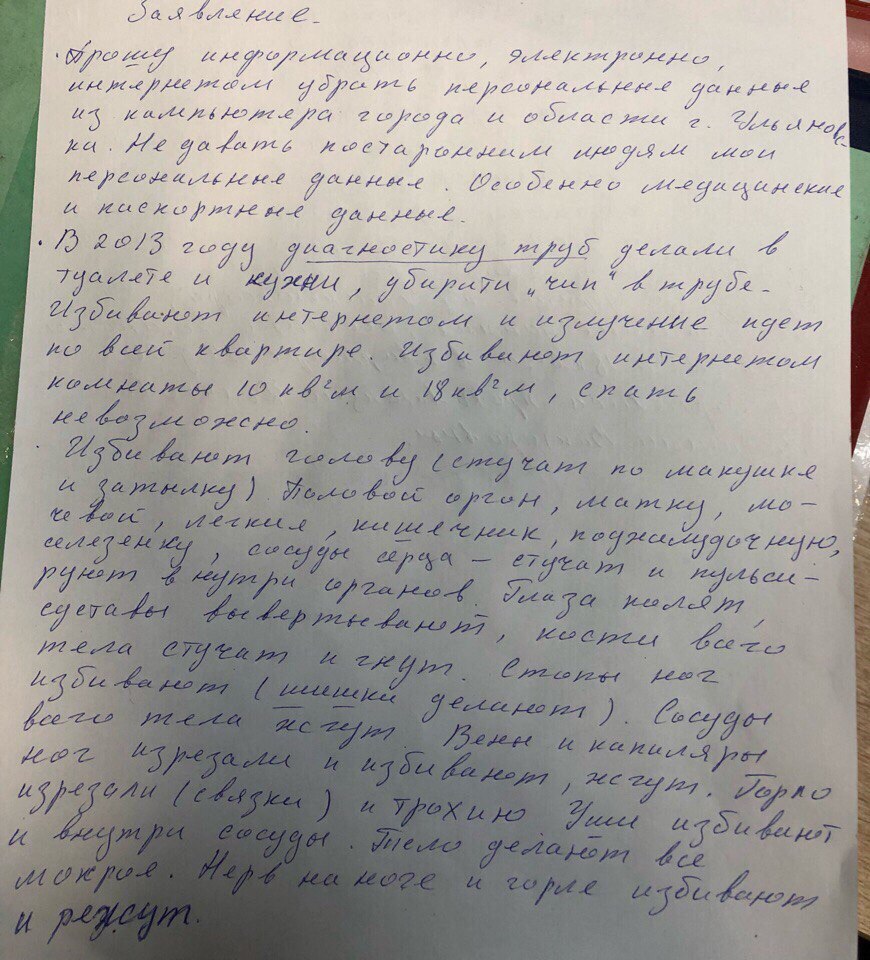 Заявление.
· Прошу информационно, электронно,
интернетом убрать персональные данные
из кампьютера города и области г. Ульяновс-
ка. Не давать постаронним людям мои
персональные данные. Особенно медицинские
и паспортные данные.
· В 2013 году диагностику труб делали в
туалете и кухни, убирити „чип“ в трубе.
Избивают интернетом и излучение идет
по всей квартире. Избивают интернетом
комнаты 10 кв²м и 18 кв²м, спать
невозможно.
· Избивают голову (стучат по макушке
и затылку). Половой орган, матку, мо-
чевой, легкия, кишечник, поджилудочную,
селезенку, сосуды серца – стучат и пульси-
руют внутри органов. Глаза колят,
суставы вывертывают, кости всего
тела стучат и гнут. Стопы ног
избивают (шишки делают). Сосуды
всего тела жгут. Вены и капиляры
ног изрезали и избивают, жгут. Горло
изрезали (связки) и трохию Уши избивают
и внутри сосуды. Тело делают все
мокрое. Нерв на ноге и горле избивают
и режут.